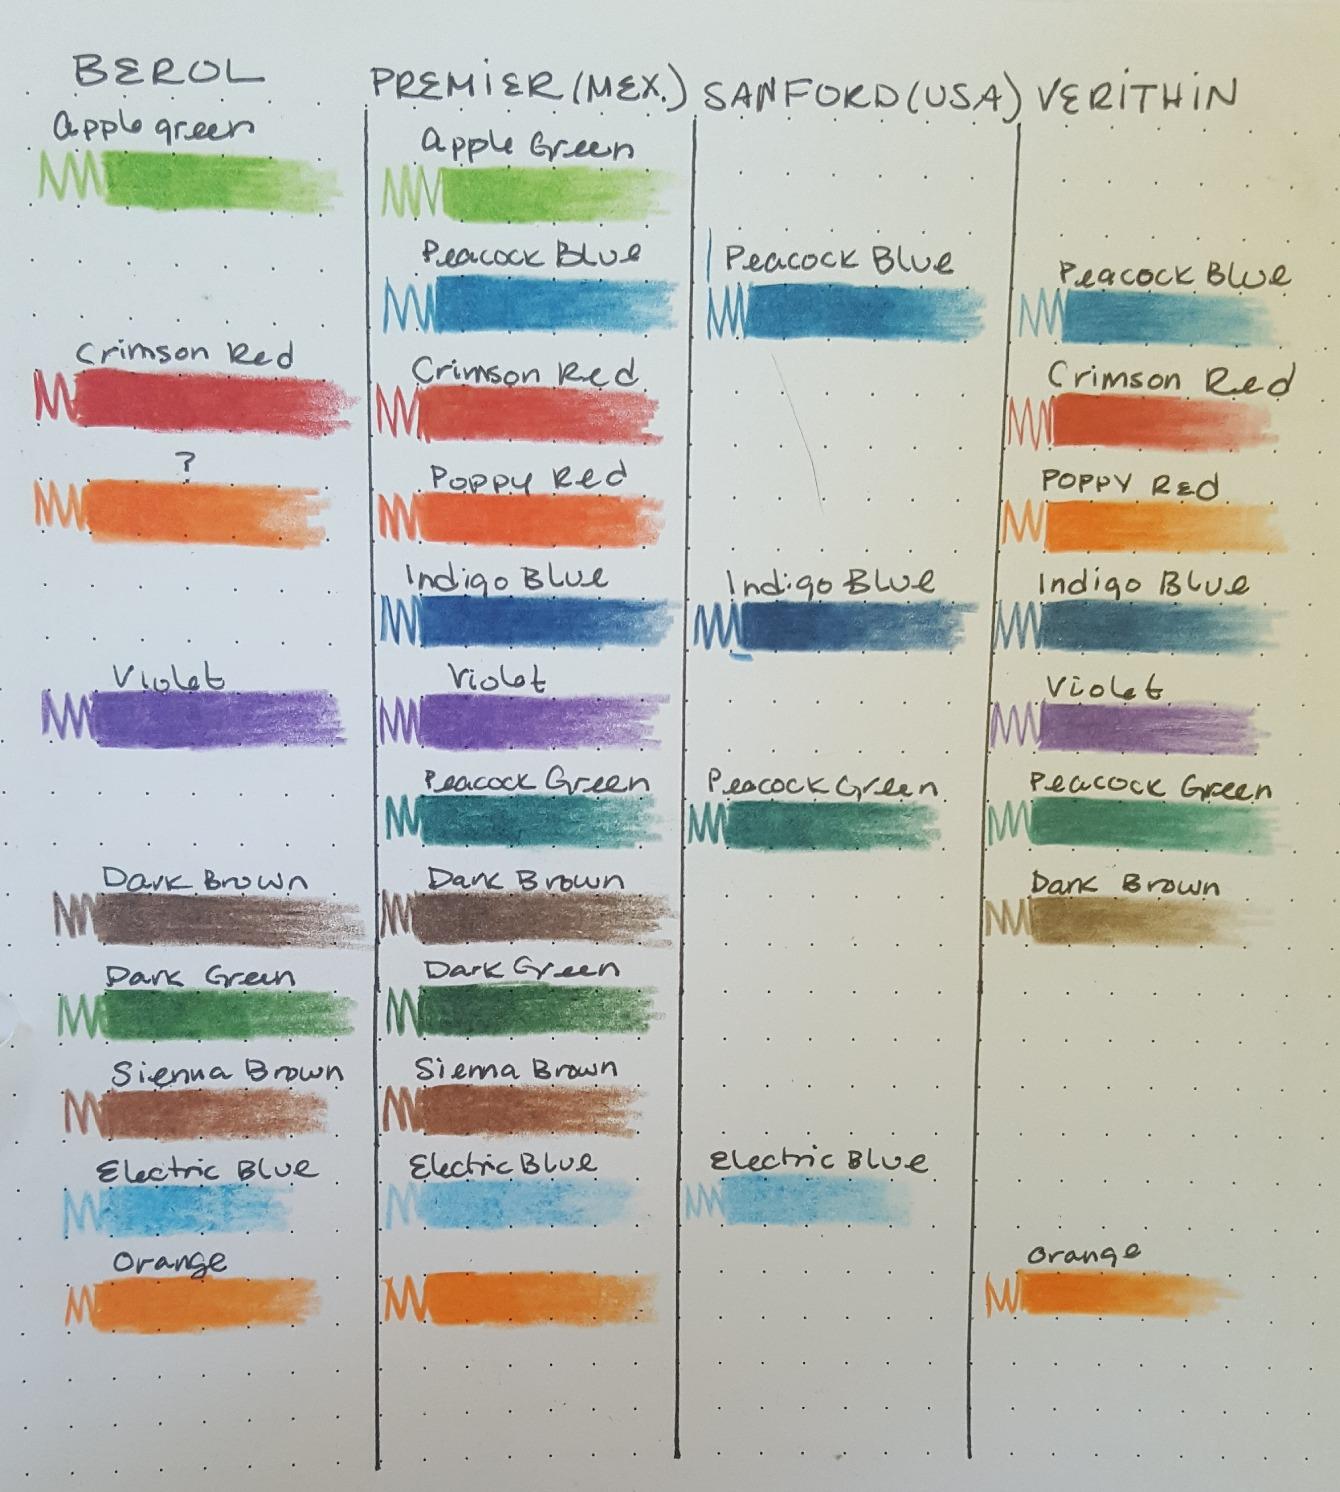 BEROL
PREMIER (MEX.)
SANFORD (USA)
VERITHIN
Apple green
Apple Green
Peacock Blue
Peacock Blue
Peacock Blue
Crimson Red
Crimson Red
Crimson Red
?
Poppy Red
POPPY RED
Indigo Blue
Indigo Blue
Indigo Blue
Violet
Violet
Violet
Peacock Green
Peacock Green
Peacock Green
Dark Brown
Dark Brown
Dark Brown
Dark Green
Dark Green
Sienna Brown
Sienna Brown
Electric Blue
Electric Blue
Electric Blue
Orange
Orange